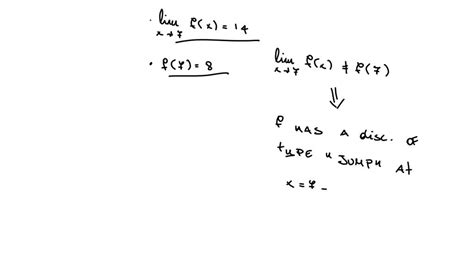 · lim f(x) = 14
x→7
· f(7) = 8
lim f(x) ≠ f(7)
x→7
⇓
f HAS A DISC. OF
tYPE "JUMP" AT
x = 7